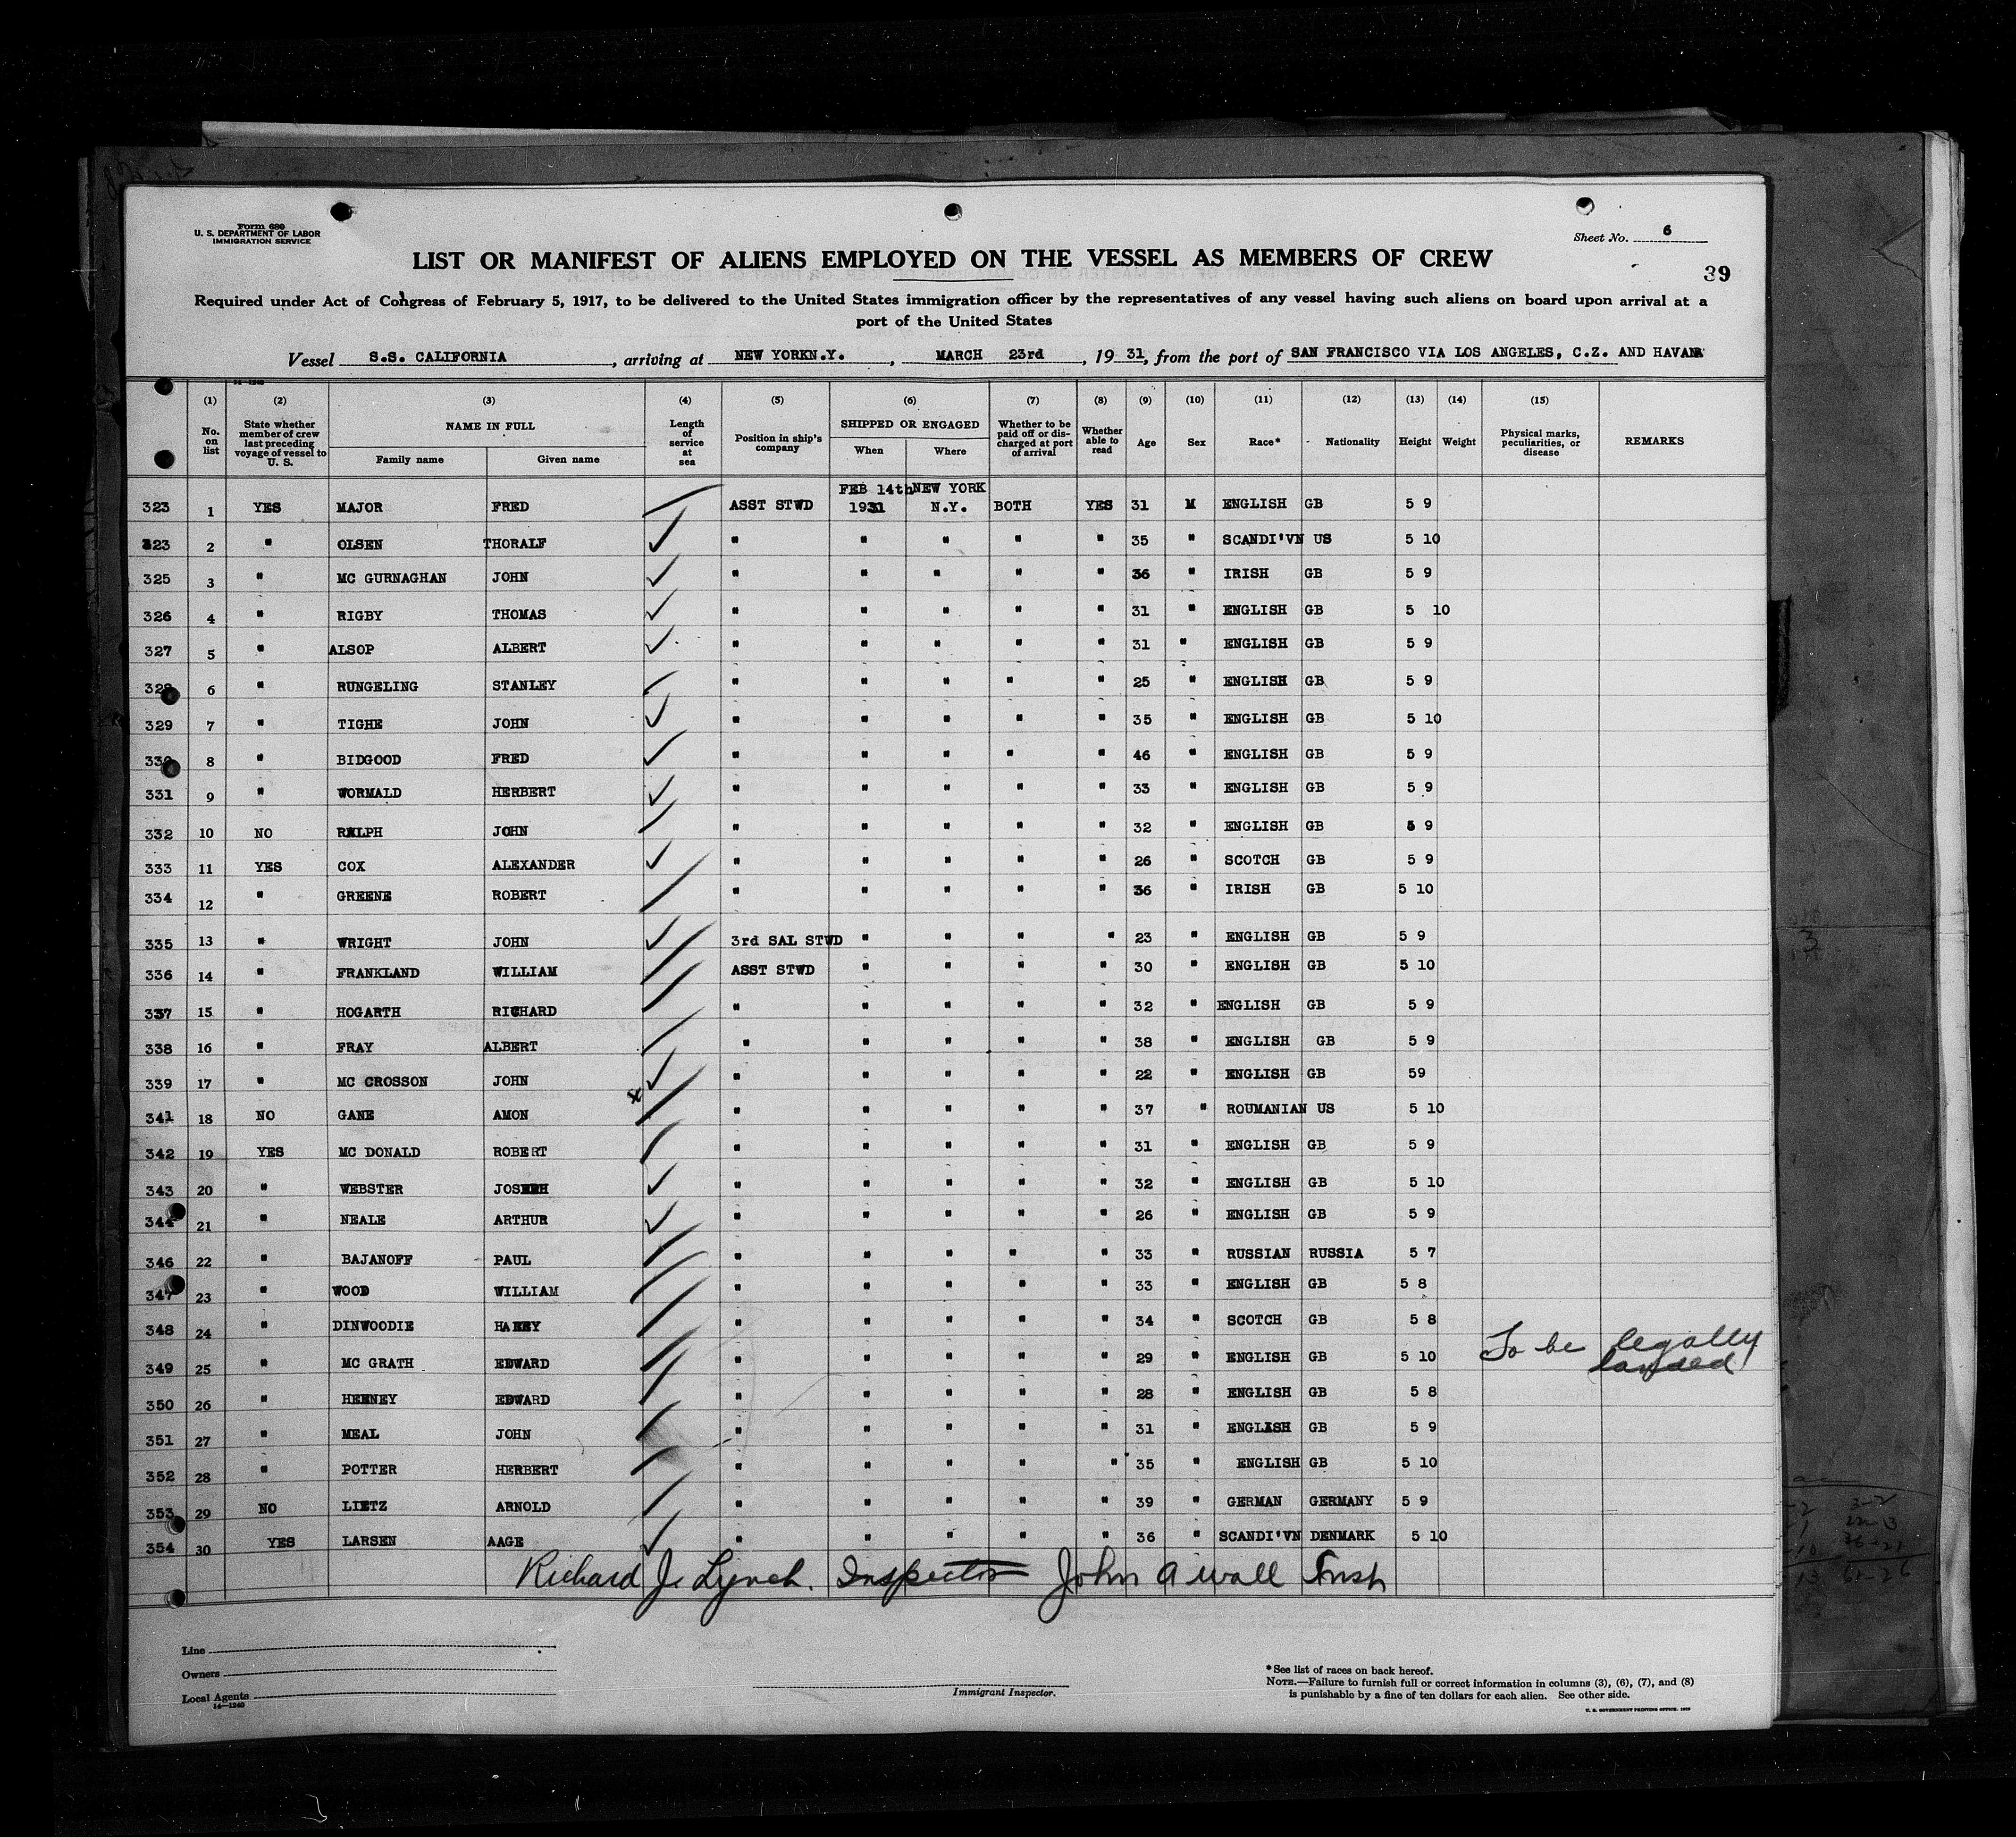 Form 680
U. S. DEPARTMENT OF LABOR
IMMIGRATION SERVICE
Sheet No. 6
LIST OR MANIFEST OF ALIENS EMPLOYED ON THE VESSEL AS MEMBERS OF CREW
39
Required under Act of Congress of February 5, 1917, to be delivered to the United States immigration officer by the representatives of any vessel having such aliens on board upon arrival at a
port of the United States
Vessel S.S. CALIFORNIA, arriving at NEW YORKN.Y., MARCH 23rd, 19 31, from the port of SAN FRANCISCO VIA LOS ANGELES, C.Z. AND HAVANA
(1) (2) (3) (4) (5) (6) (7) (8) (9) (10) (11) (12) (13) (14) (15)
No. on list State whether member of crew last preceding voyage of vessel to U. S. NAME IN FULL Family name Given name Length of service at sea Position in ship's company SHIPPED OR ENGAGED When Where Whether to be paid off or discharged at port of arrival Whether able to read Age Sex Race* Nationality Height Weight Physical marks, peculiarities, or disease REMARKS
FEB 14th NEW YORK
323 1 YES MAJOR FRED ASST STWD 1931 N.Y. BOTH YES 31 M ENGLISH GB 5 9
323 2 " OLSEN THORALF " " " " " 35 " SCANDI'VN US 5 10
325 3 " MC GURNAGHAN JOHN " " " " " 36 " IRISH GB 5 9
326 4 " RIGBY THOMAS " " " " " 31 " ENGLISH GB 5 10
327 5 " ALSOP ALBERT " " " " " 31 " ENGLISH GB 5 9
328 6 " RUNGELING STANLEY " " " " " 25 " ENGLISH GB 5 9
329 7 " TIGHE JOHN " " " " " 35 " ENGLISH GB 5 10
330 8 " BIDGOOD FRED " " " " " 46 " ENGLISH GB 5 9
331 9 " WORMALD HERBERT " " " " " 33 " ENGLISH GB 5 9
332 10 NO RALPH JOHN " " " " " 32 " ENGLISH GB 5 9
333 11 YES COX ALEXANDER " " " " " 26 " SCOTCH GB 5 9
334 12 " GREENE ROBERT " " " " " 36 " IRISH GB 5 10
335 13 " WRIGHT JOHN 3rd SAL STWD " " " " 23 " ENGLISH GB 5 9
336 14 " FRANKLAND WILLIAM ASST STWD " " " " 30 " ENGLISH GB 5 10
337 15 " HOGARTH RICHARD " " " " " 32 " ENGLISH GB 5 9
338 16 " FRAY ALBERT " " " " " 38 " ENGLISH GB 5 9
339 17 " MC CROSSON JOHN " " " " " 22 " ENGLISH GB 59
341 18 NO GANE AMON x " " " " " 37 " ROUMANIAN US 5 10
342 19 YES MC DONALD ROBERT " " " " " 31 " ENGLISH GB 5 9
343 20 " WEBSTER JOSEPH " " " " " 32 " ENGLISH GB 5 10
344 21 " NEALE ARTHUR " " " " " 26 " ENGLISH GB 5 9
346 22 " BAJANOFF PAUL " " " " " 33 " RUSSIAN RUSSIA 5 7
347 23 " WOOD WILLIAM " " " " " 33 " ENGLISH GB 5 8
348 24 " DINWOODIE HARRY " " " " " 34 " SCOTCH GB 5 8
349 25 " MC GRATH EDWARD " " " " " 29 " ENGLISH GB 5 10 To be legally landed
350 26 " HEENEY EDWARD " " " " " 28 " ENGLISH GB 5 8
351 27 " MEAL JOHN " " " " " 31 " ENGLISH GB 5 9
352 28 " POTTER HERBERT " " " " " 35 " ENGLISH GB 5 10
353 29 NO LIETZ ARNOLD " " " " " 39 " GERMAN GERMANY 5 9
354 30 YES LARSEN AAGE " " " " " 36 " SCANDI'VN DENMARK 5 10
Richard J. Lynch. Inspector John A Wall Insp
Line
Owners
Local Agents
14—1240
Immigrant Inspector.
*See list of races on back hereof.
NOTE.—Failure to furnish full or correct information in columns (3), (6), (7), and (8)
is punishable by a fine of ten dollars for each alien. See other side.
U. S. GOVERNMENT PRINTING OFFICE